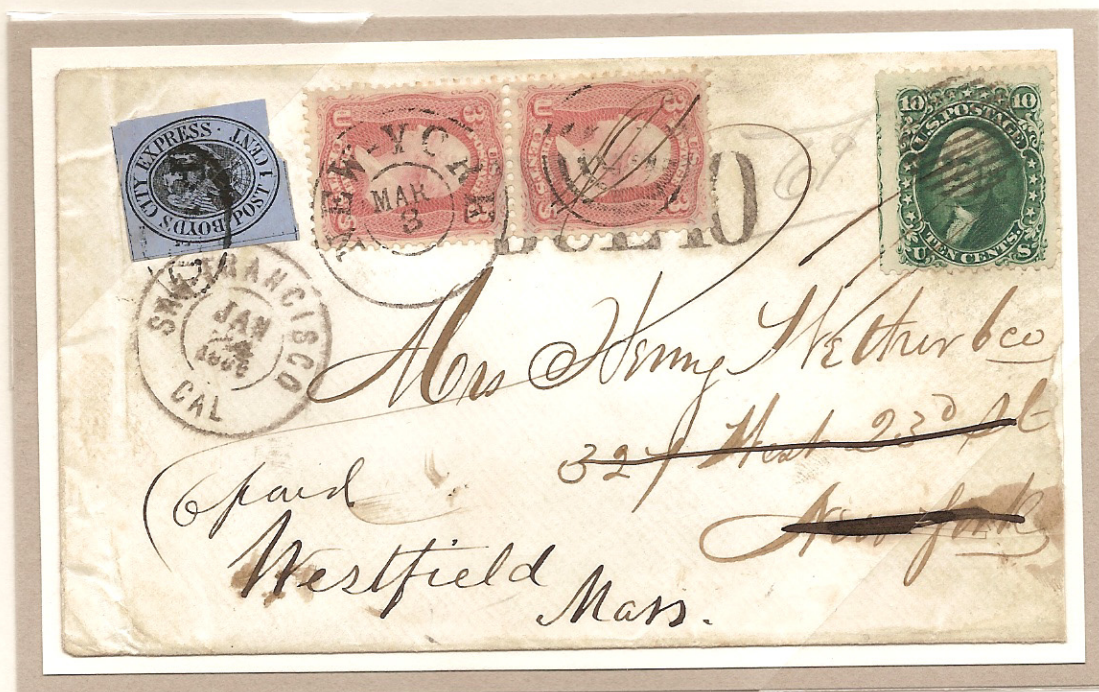 BOYD'S CITY EXPRESS · POST 1 CENT
3 U
3 U
NEW-YORK
MAR
8
10 10
U.S. POSTAGE.
TEN CENTS.
U S
DUE 10
SAN FRANCISCO
JAN
CAL
Mrs Henry Wetherbee
327 West 23D St
New York
6 paid
Westfield
Mass.